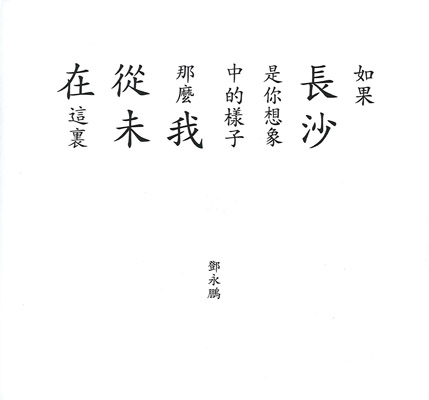 如果
長沙
是你想象
中的樣子
那麽我
從未
在這裏
鄧永鵬